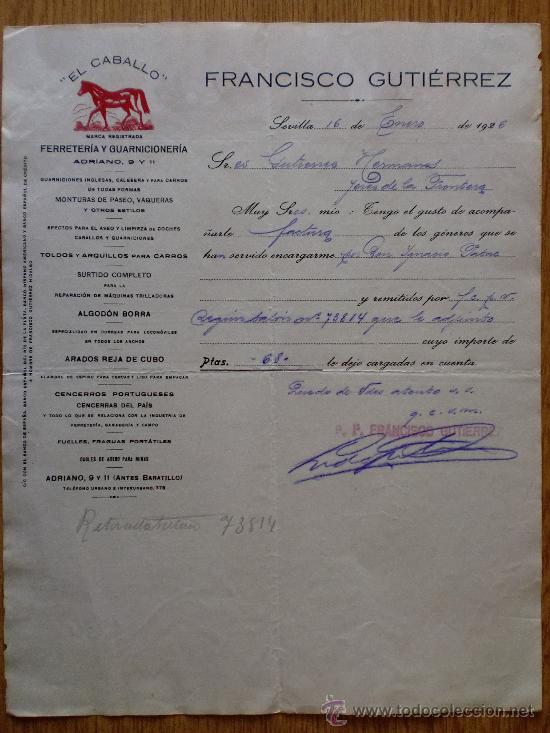 "EL CABALLO"
MARCA REGISTRADA
FERRETERÍA Y GUARNICIONERÍA
ADRIANO, 9 Y 11
GUARNICIONES INGLESAS, CALESERA Y PARA CARROS
DE TODAS FORMAS
MONTURAS DE PASEO, VAQUERAS
Y OTROS ESTILOS
EFECTOS PARA EL ASEO Y LIMPIEZA DE COCHES
CABALLOS Y GUARNICIONES
TOLDOS Y ARQUILLOS PARA CARROS
SURTIDO COMPLETO
PARA LA
REPARACIÓN DE MÁQUINAS TRILLADORAS
ALGODÓN BORRA
ESPECIALIDAD EN CORREAS PARA LOCOMÓVILES
EN TODOS LOS ANCHOS
ARADOS REJA DE CUBO
ALAMBRE DE ESPINO PARA CERCAS Y LISO PARA EMPACAR
CENCERROS PORTUGUESES
CENCERRAS DEL PAÍS
Y TODO LO QUE SE RELACIONA CON LA INDUSTRIA DE
FERRETERÍA, GANADERÍA Y CAMPO
FUELLES, FRAGUAS PORTÁTILES
CABLES DE ACERO PARA MINAS
ADRIANO, 9 Y 11 (ANTES BARATILLO)
TELÉFONO URBANO E INTERURBANO, 378
C/C CON EL BANCO DE ESPAÑA, BANCO ESPAÑOL DEL RÍO DE LA PLATA, BANCO HISPANO AMERICANO Y BANCO ESPAÑOL DE CRÉDITO
A NOMBRE DE FRANCISCO GUTIÉRREZ HIDALGO
FRANCISCO GUTIÉRREZ
Sevilla 16 de Enero de 1926
Sr.es Gutierrez Hermanos
Jerez de la Frontera
Muy Sres. mio: Tengo el gusto de acompa-
ñarle factura de los géneros que se
han servido encargarme pr Don Ignacio
y remitidos por f.c. p.v.
según talón nº 73814 que le adjunto
cuyo importe de
Ptas. -68- le dejo cargadas en cuenta.
Quedo de Vdes atento s.s.
q.e.s.m.
P. P. FRANCISCO GUTIERREZ
73814
todocoleccion
www.todocoleccion.net